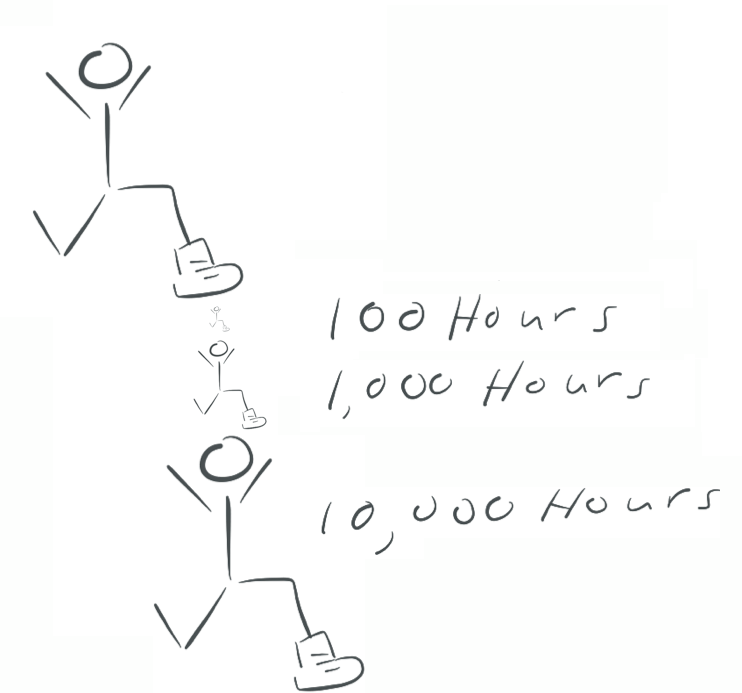 100 Hours
1,000 Hours
10,000 Hours